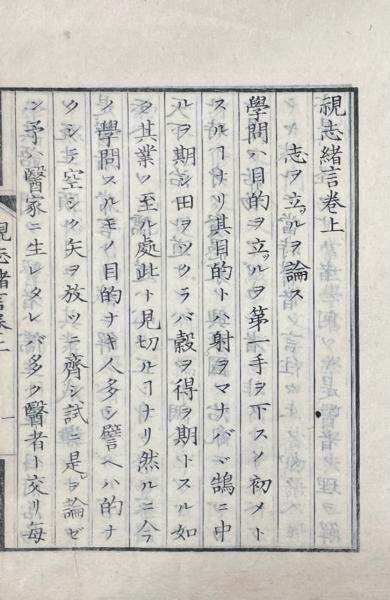 視志緒言巻上
志ヲ立ツルヲ論ス
學問ハ目的ヲ立ツルヲ第一手ヲ下スノ初メト
スルヿナリ其目的トハ射ヲマナバヾ鵠ニ中
ルヲ期シ田ヲツクラバ穀ヲ得ヲ期トスル如
ク其業ノ至ル處此ト見切ルヿナリ然ルニ今
ノ學問スルモノ目的ナキ人多シ譬ヘハ的ナ
クシテ空シク矢ヲ放ツニ齊シ試ニ是ヲ論ゼ
ン予ハ醫家ニ生レタレバ多ク醫者ト交リ毎
視志緒言巻上
一